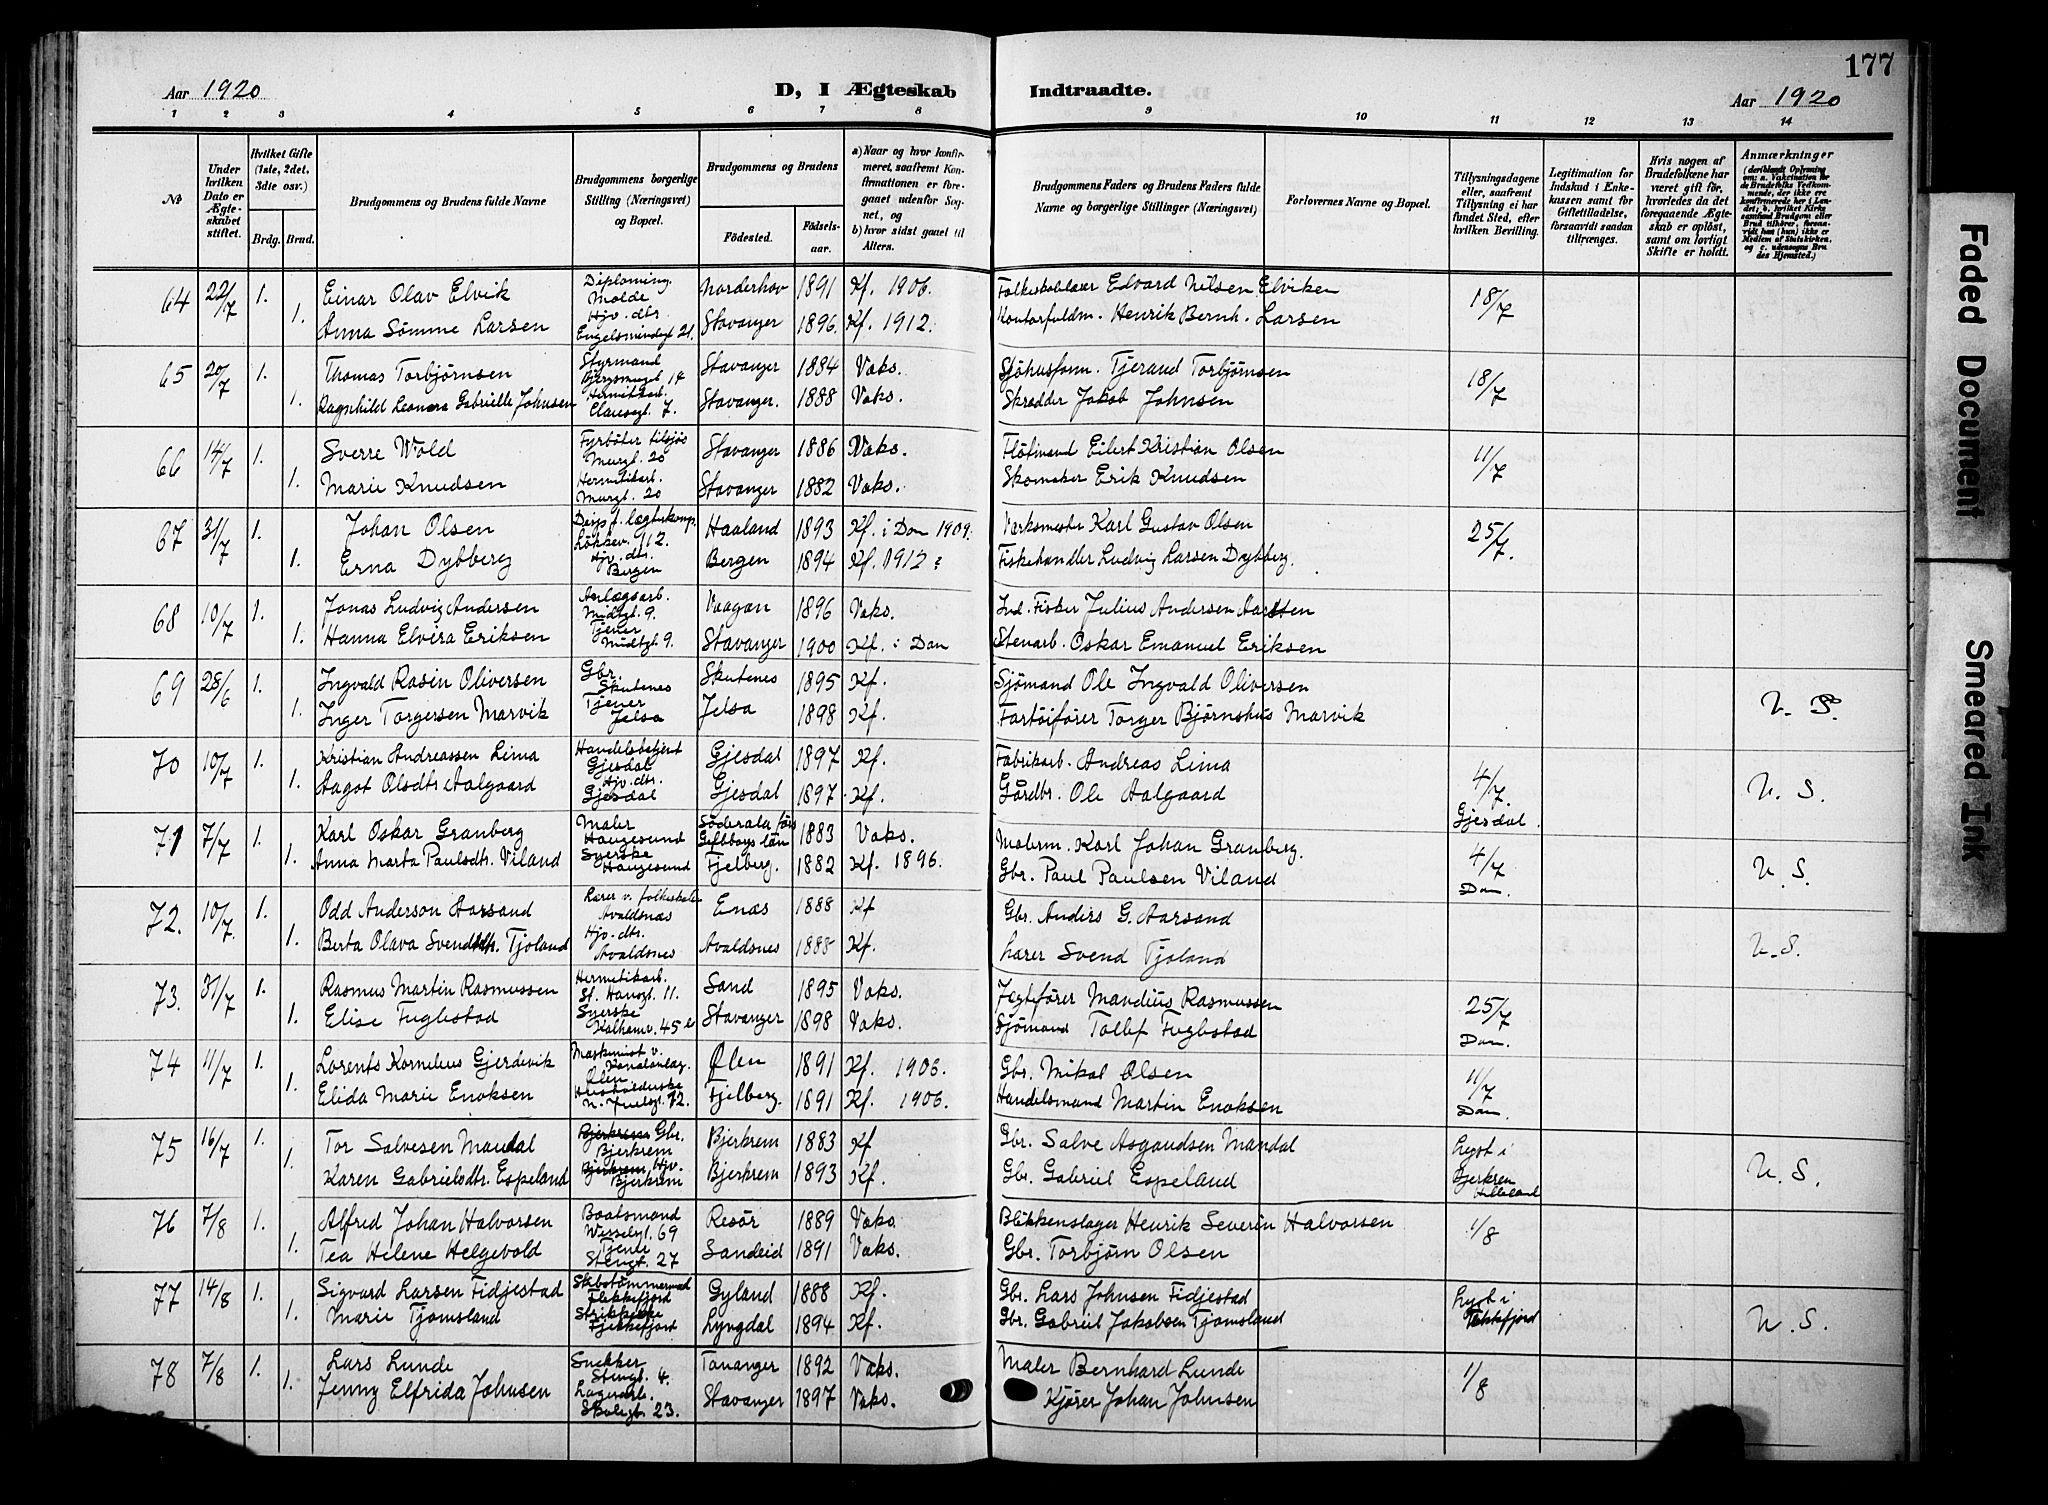 177
Aar 1920
D, I Ægteskab
Indtraadte.
Aar 1920
1 2 3 4 5 6 7 8 9 10 11 12 13 14
No
Under hvilken Dato er Ægteskabet stiftet.
Hvilket Gifte (1ste, 2det, 3die osv.)
Brdg. Brud.
Brudgommens og Brudens fulde Navne
Brudgommens borgerlige Stilling (Næringsvei) og Bopæl.
Brudgommens og Brudens
Fødested. Fødselsaar.
a) Naar og hvor konfirmeret, saafremt Konfirmationen er foregaaet udenfor Sognet, og b) hvor sidst gaaet til Alters.
Brudgommens Faders og Brudens Faders fulde Navne og borgerlige Stillinger (Næringsvei)
Forlovernes Navne og Bopæl.
Tillysningsdagene eller, saafremt Tillysning ei har fundet Sted, efter hvilken Bevilling.
Legitimation for Indskud i Enkekassen samt for Giftetilladelse, forsaavidt saadan tiltrænges.
Hvis nogen af Brudefolkene har været gift før, hvorledes da det foregaaende Ægteskab er opløst, samt om lovligt Skifte er holdt.
Anmærkninger
64 22/7 1. Einar Olav Elvik Diploming. Molde Norderhov 1891 Kf. 1906. Folkeskolelærer Edvard Nilsen Elviken 18/7
1. Anna Sømme Larsen Hjv. dtr. Engelsmindegt 21. Stavanger 1896. Kf. 1912. Kontorfuldm. Henrik Bernh. Larsen
65 20/7 1. Thomas Torbjørnsen Styrmand Bjergsmugt. 14 Stavanger 1884 Vaks. Sjøhusform. Tjerand Torbjørnsen 18/7
1. Ragnhild Leonora Gabrielle Johnsen Hermetikarb. Clausegt. 7. Stavanger. 1888 Vaks. Skrædder Jakob Johnsen
66 14/7 1. Sverre Wold Fyrbøter tilsjøs Murgt. 20 Stavanger 1886 Vaks. Fløtmand Eilert Kristian Olsen 11/7
1. Marie Knudsen Hermetikarb. Murgt. 20 Stavanger 1882 Vaks. Skomaker Erik Knudsen
67 31/7 1. Johan Olsen Løkkev. 112. Haaland 1893 Kf. i Dom 1909. Værksmester Karl Gustav Olsen 25/7.
1. Erna Dybberg Hjv. dtr. Bergen Bergen 1894 Kf. 1912 ? Fiskehandler Ludvig Larsen Dybberg.
68 10/7 1. Jonas Ludvig Andersen Anlægsarb. Midtgt. 9. Vaagan 1896 Vaks. Ind. Fisker Julius Andersen
1. Hanna Elvira Eriksen Tjener Midtgt. 9. Stavanger 1900 Kf. i Dom Stenarb. Oskar Emanuel Eriksen
69 28/6 1. Ingvald Rasin Oliversen Gbr. Skutenes Skutenes 1895 Kf. Sjømand Ole Ingvald Oliversen
1. Inger Torgersen Marvik Tjener Jelsa Jelsa 1898 Kf. Fartøifører Torger Bjørnshus Marvik U. P.
70 10/7 1. Kristian Andreassen Lima Handelsbetjent Gjesdal Gjesdal 1897 Kf. Fabrikarb. Andreas Lima 4/7. Gjesdal.
1. Aagot Olsdtr. Aalgaard Hjv. dtr. Gjesdal Gjesdal 1897. Kf. Gårdbr. Ole Aalgaard U. S.
71 7/7 1. Karl Oskar Granberg Maler Haugesund Söderala förs Gefleborgs län 1883 Vaks. Malerm. Karl Johan Granberg. 4/7 Dom.
1. Anna Marta Paulsdtr. Viland Syerske Haugesund Fjelberg. 1882 Kf. 1896. Gbr. Paul Paulsen Viland U. S.
72. 10/7. 1. Odd Anderson Aarsand Lærer v. folkeskolen Avaldsnæs Enæs 1888 Kf Gbr. Anders G. Aarsand
1. Berta Olava Svendsdtr. Tjoland Hjv. dtr. Avaldsnes Avaldsnes 1888 Kf. Lærer Svend Tjoland U. S.
73. 31/7 1. Rasmus Martin Rasmussen Hermetikarb. St. Hansgt. 11. Sand 1895 Vaks. Jægtefører Mandius Rasmussen 25/7 Dom.
1. Elise Fuglestad Syerske Kalhamv. 45 Stavanger 1898 Vaks. Sjömand Tollef Fuglestad
74 11/7 1. Lorents Kornelius Gjerdevik Maskinist v. Kanalanlæg. Ølen Ølen 1891 Kf. 1906. Gbr. Mikal Olsen 11/7 Dom.
1. Elida Marie Enoksen Husholderske N. Juelsgt. 72. Fjelberg. 1891 Kf. 1906. Handelsmand Martin Enoksen
75 16/7 1. Tor Salvesen Mandal Bjerkrem Gbr. Bjerkrem Bjerkrem 1883 Kf Gbr. Salve Asgaudsen Mandal Lyst i Bjerkrem Helleland
1. Karen Gabrielsdtr. Espeland Bjerkrem Hjv. Bjerkrem Bjerkrem 1893 Kf. Gbr. Gabriel Espeland U. S.
76 7/8 1. Alfred Johan Halvorsen Baatsmand Wesselgt. 69 Resör 1889 Vaks. Blikkenslager Henrik Severin Halvorsen 1/8
1. Tea Helene Helgevold Tjener Stengt. 27 Sandeid 1891 Vaks. Gbr. Torbjørn Olsen
77 14/8 1. Sigvard Larsen Fidjestad Skibstømmermand Flekkefjord Gyland 1888 Kf. Gbr. Lars Johnsen Fidjestad Lyst i Flekkefjord
1. Marie Tjomsland Strikkerske Flekkefjord Lyngdal 1894 Kf. Gbr. Gabriel Jakobsen Tjomsland U. S.
78 7/8 1. Lars Lunde Snekker Stengt. 4. Tananger 1892 Vaks. Maler Bernhard Lunde 1/8
1. Jenny Elfrida Johnsen Lagerarb. Skolegt. 23. Stavanger 1897 Vaks. Kjører Johan Johnsen
Faded Document
Smeared Ink